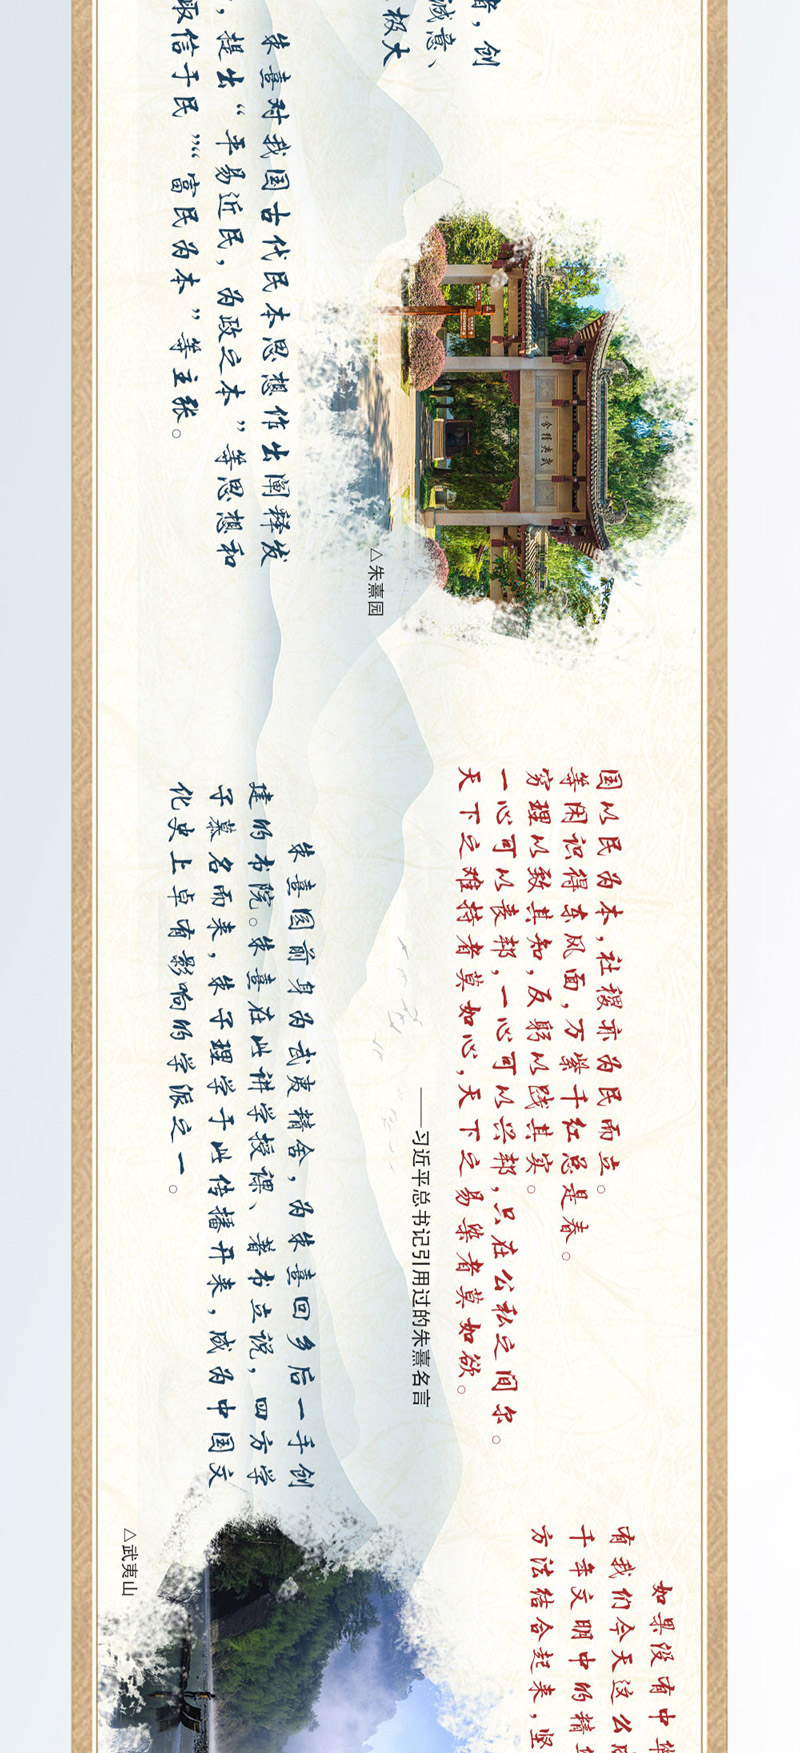 者，创
诚意、
极大
朱熹对我国古代民本思想作出阐释发
，提出“平易近民，为政之本”等思想和
取信于民”“富民为本”等主张。
武夷精舍
△朱熹园
国以民为本，社稷亦为民而立。
等闲识得东风面，万紫千红总是春。
穷理以致其知，反躬以践其实。
一心可以丧邦，一心可以兴邦，只在公私之间尔。
天下之难持者莫如心，天下之易染者莫如欲。
——习近平总书记引用过的朱熹名言
朱熹园前身为武夷精舍，为朱熹回乡后一手创
建的书院。朱熹在此讲学授课、著书立说，四方学
子慕名而来，朱子理学于此传播开来，成为中国文
化史上卓有影响的学派之一。
△武夷山
如果没有中华
有我们今天这么
千年文明中的精
方法结合起来，坚